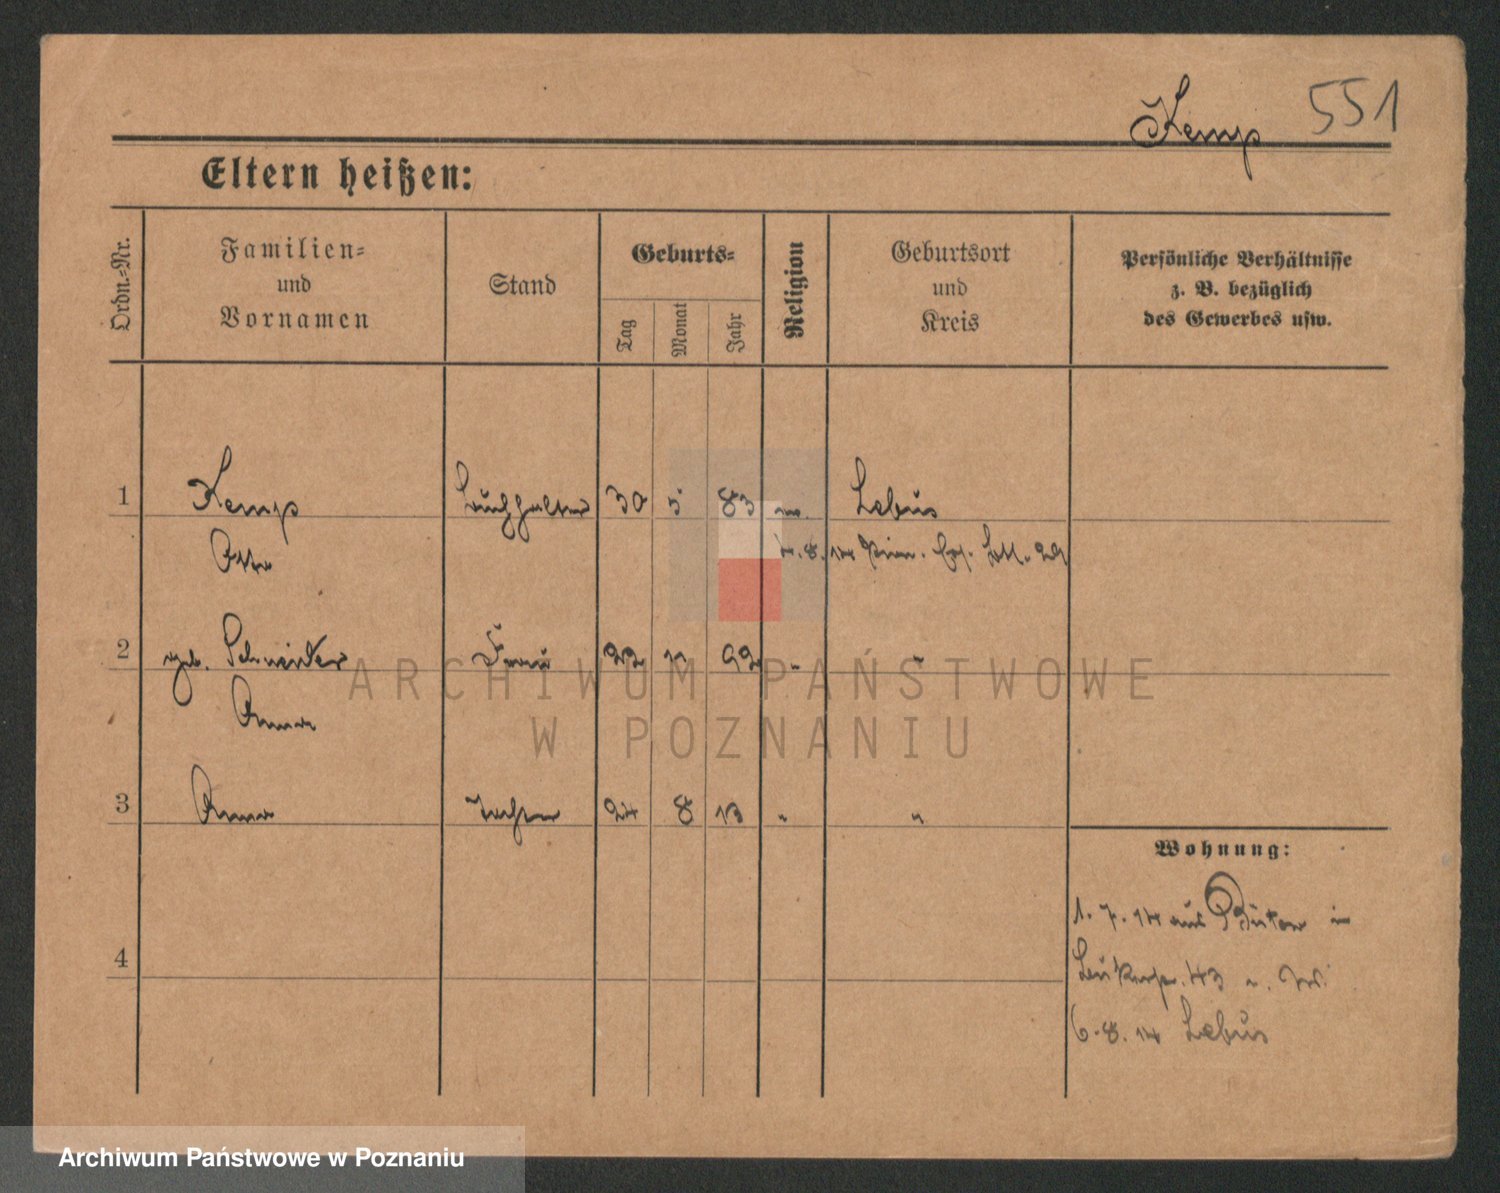 Kemp 551
Eltern heißen:
Ordn.-Nr.
Familien-
und
Vornamen
Stand
Geburts-
Tag
Monat
Jahr
Religion
Geburtsort
und
Kreis
Persönliche Verhältnisse
z. B. bezüglich
des Gewerbes usw.
1 Kemp Buchhalter 30 5 83 Lebus
Otto 8. 14
2 geb. Schneider Frau 92 "
Anna
3 Anna Tochter 24 8 13 " "
Wohnung:
1. 7. 14 aus Bütow in
43
4
6. 8. 14 Lebus
ARCHIWUM PAŃSTWOWE
W POZNANIU
Archiwum Państwowe w Poznaniu